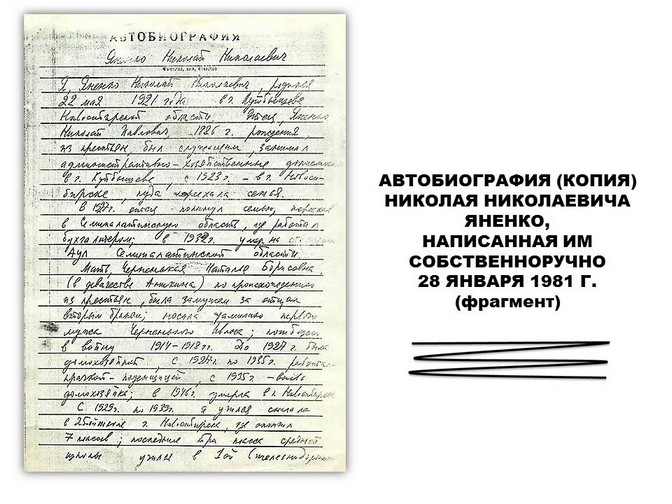 АВТОБИОГРАФИЯ
Яненко Николай Николаевич
Я, Яненко Николай Николаевич, родился
22 мая 1921 года в г. Куйбышеве
Новосибирской области. Отец, Яненко
Николай Павлович, рождения,
из крестьян, был служащим, занимал
административно-хозяйственные должности
в г. Куйбышеве, с 1923 - в г. Новоси-
бирске, куда переехала семья.
В 1927г. отец покинул семью, переехав
в Семипалатинскую область, где работал
бухгалтером; в умер на ст.
Аул Семипалатинской области.
Мать, Черненькая Наталья Борисовна,
(в девичестве Анихина) по происхождению
из крестьян, была замужем за отцом
вторым браком; носила фамилию первого
мужа Черненького погибшего
в войну 1914-1918гг. До 1927г. была
домохозяйкой, с 1927г. по 1935г. работала
прачкой-поденщицей, с 1935г. - вновь
домохозяйка; в умерла в г. Новосибирске.
С 1929г. по 1939г. я учился сначала
в 25й школе г. Новосибирска, где окончил
7 классов; последние три класса средней
школы учился в 1ой (железнодорожн
АВТОБИОГРАФИЯ (КОПИЯ)
НИКОЛАЯ НИКОЛАЕВИЧА
ЯНЕНКО,
НАПИСАННАЯ ИМ
СОБСТВЕННОРУЧНО
28 ЯНВАРЯ 1981 Г.
(фрагмент)